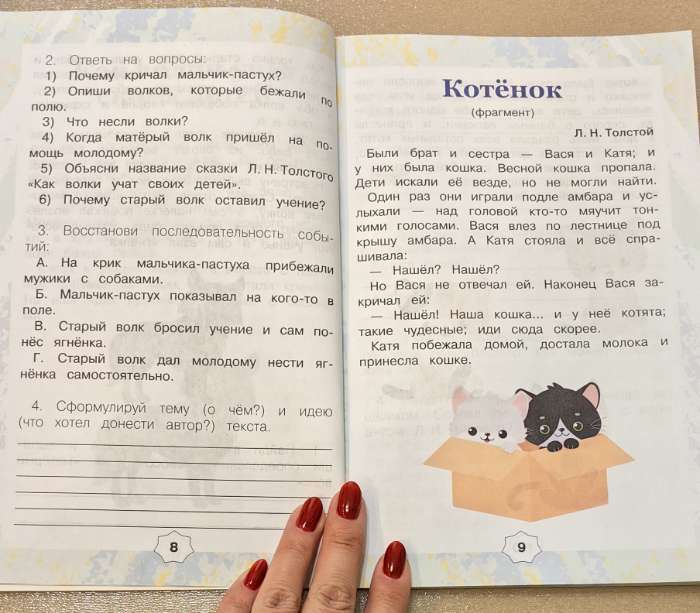 2. Ответь на вопросы:
1) Почему кричал мальчик-пастух?
2) Опиши волков, которые бежали по
полю.
3) Что несли волки?
4) Когда матёрый волк пришёл на по-
мощь молодому?
5) Объясни название сказки Л. Н. Толстого
«Как волки учат своих детей».
6) Почему старый волк оставил учение?
3. Восстанови последовательность собы-
тий:
А. На крик мальчика-пастуха прибежали
мужики с собаками.
Б. Мальчик-пастух показывал на кого-то в
поле.
В. Старый волк бросил учение и сам по-
нёс ягнёнка.
Г. Старый волк дал молодому нести яг-
нёнка самостоятельно.
4. Сформулируй тему (о чём?) и идею
(что хотел донести автор?) текста.
8
Котёнок
(фрагмент)
Л. Н. Толстой
Были брат и сестра — Вася и Катя; и
у них была кошка. Весной кошка пропала.
Дети искали её везде, но не могли найти.
Один раз они играли подле амбара и ус-
лыхали — над головой кто-то мяучит тон-
кими голосами. Вася влез по лестнице под
крышу амбара. А Катя стояла и всё спра-
шивала:
— Нашёл? Нашёл?
Но Вася не отвечал ей. Наконец Вася за-
кричал ей:
— Нашёл! Наша кошка... и у неё котята;
такие чудесные; иди сюда скорее.
Катя побежала домой, достала молока и
принесла кошке.
9